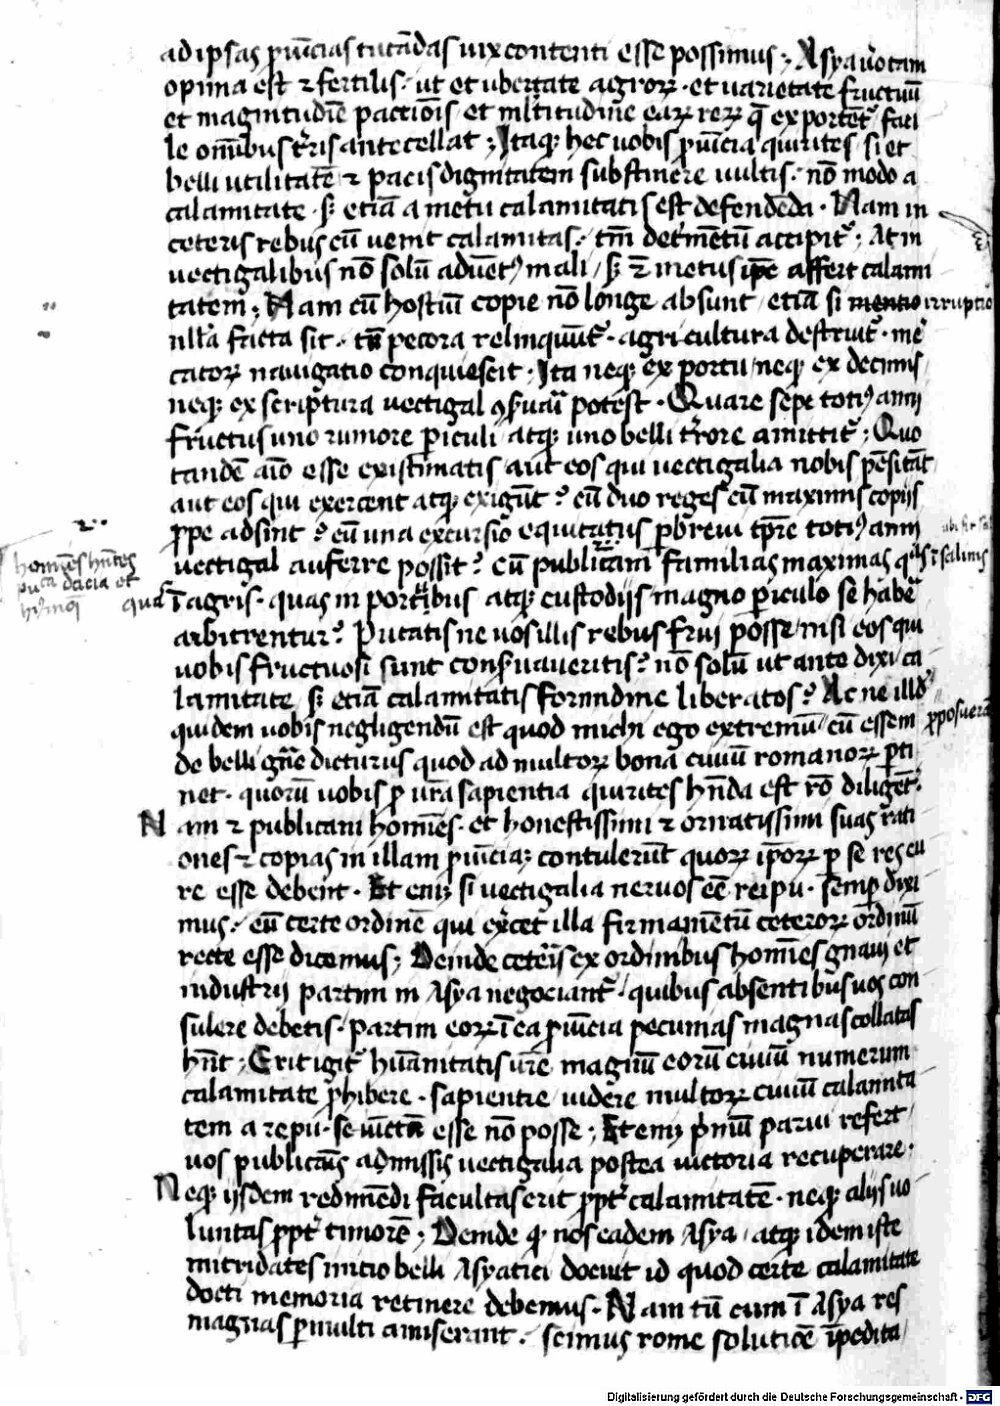 ad ipsas ꝓuīcias tutādas uix contenti esse possimus ; Asya ṽo tam
opima est ⁊ fertilis · ut et ubertate agroꝝ · et uarietate fructuū
et magnitudīe pactiōis et mltitudine eaꝝ reꝝ q̄ exportēt᷑ faci
le om̄ibus tr̃is antecellat ; Itaqꝫ hec uobis ꝓuīcia quirites si et
belli utilitatē ⁊ pacis dignitatem substinere uultis · nō modo a
calamitate · sꝫ etiā a metu calamitatis est defendēda · Nam in
ceteris rebus cū uenit calamitas · tm̄ det'mētū accipit᷑ ; At in
uectigalibus nō solū aduētꝰ mali / sꝫ ⁊ metus ip̄e affert calami
tatem ; Nam cū hostiū copie nō longe absunt / etiā si irruptio
nulla facta sit · tn̄ pecora relinquūt᷑ · agricultura destruit᷑ · me
catoꝝ nauigatio conquiescit · Ita neqꝫ ex portu / neqꝫ ex decimis
neqꝫ ex scriptura uectigal ꝯs̃uari potest · Quare sepe totiꝰ anni
fructus uno rumore ꝑiculi atqꝫ uno belli tr̃rore amittit᷑ ; Quo
tandē aīo esse existimatis / aut eos qui uectigalia nobis pēsitāt
aut eos qui exercent atqꝫ exigūt ? cū duo reges cū maximis copijs
ꝓpe adsint ? cū una excursio equitatus ꝑbreui tp̄re totiꝰ anni
uectigal auferre possit ? cū publicani familias maximas qˢ ī salinis
hom̄es hn̄tes
qua ī agris · quas in portibus atqꝫ custodijs magno ꝑiculo se habē
arbitrentur ? Putatis ne uos illis rebus frui posse / nisi eos qui
uobis fructuosi sunt cons̃uaueritis ? nō solū ut ante dixi ca
lamitate sꝫ etiā calamitatis formidine liberatos ? Ac ne illd
quidem uobis negligendū est quod michi ego extremū cū essem ꝓposuerā
de belli gn̄e dicturus quod ad multoꝝ bona ciuiū romanoꝝ ꝑti
net · quorū uobis ꝓ ur̃a sapientia quirites hn̄da est rō diligēt᷑ ·
Nam ⁊ publicani hom̄es · et honestissimi ⁊ ornatissimi suas rati
ones ⁊ copias in illam ꝓuīciaꝫ contulerūt quoꝝ ip̄oꝝ ꝑ se res cu
re esse debent · Et eniꝫ si uectigalia neruos eē reipu · semꝑ dixi
mus · eū certe ordinē qui ex̃cet illa firmamētū ceteroꝝ ordinū
recte esse dicemus ; Deinde ceteris ex ordinibus hom̄es gnaui et
industrij partim in Asya negociant᷑ · quibus absentibus uos con
sulere debetis · partim eoꝝ ī ea ꝓuīcia pecunias magnas collatas
hn̄t ; Erit igit᷑ hūanitatis ur̃e magnū eorū ciuiū numerum
calamitate ꝓhibere · sapientie uidere multoꝝ ciuiū calamita
tem a repu · seiūctā esse nō posse ; Etenī p'mū parui refert
uos publicāis admissis uectigalia postea uictoria recuperare ·
Neqꝫ ijsdem redimēdi facultas erit ꝓpt᷑ calamitatē · neqꝫ alijs uo
luntas ꝓpt᷑ timorē ; Deinde qꝫ nos eadem Asya / atqꝫ idem iste
mitridates initio belli Asyatici docuit id quod certe calamitate
docti memoria retinere debemus · Nam tū cum ī Asya res
magnas ꝑmulti amiserant · scimus rome solutiōe īpedita
Digitalisierung gefördert durch die Deutsche Forschungsgemeinschaft - DFG